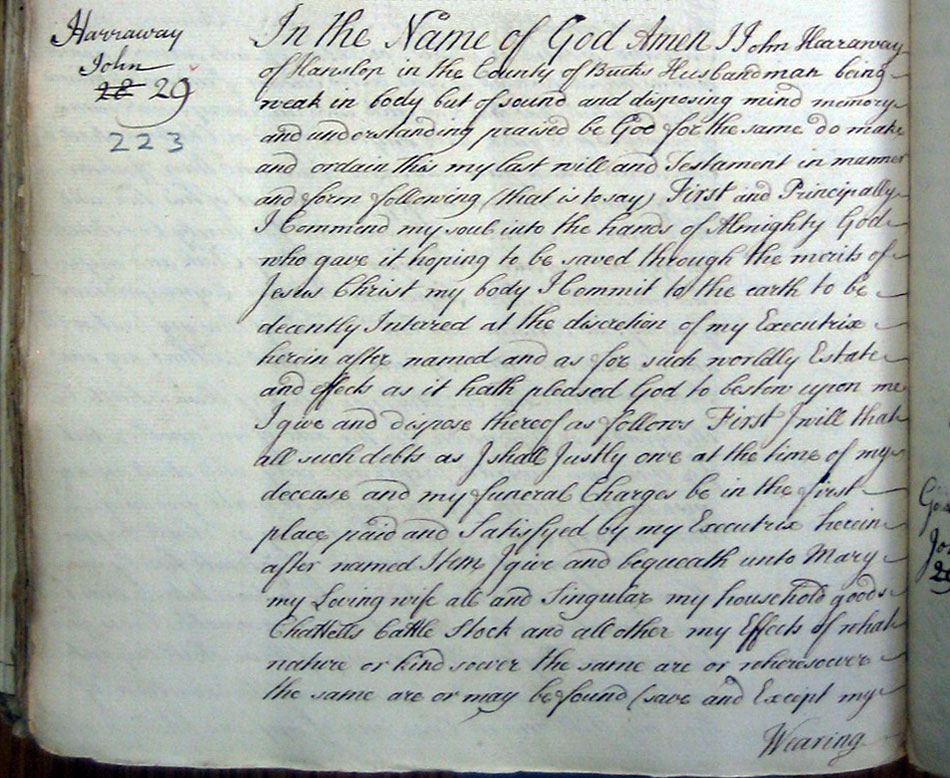 Harraway
John
28 29
223
In the Name of God Amen I John Hearaway
of Hanslop in the County of Bucks Husbandman being
weak in body but of sound and disposing mind memory
and understanding praised be God for the same do make
and ordain this my last will and Testament in manner
and form following (that is to say) First and Principally
I Commend my soul into the hands of Almighty God
who gave it hoping to be saved through the merits of
Jesus Christ my body I Commit to the earth to be
decently Interred at the discretion of my Executrix
herein after named and as for such worldly Estate
and effects as it hath pleased God to bestow upon me
I give and dispose thereof as follows First I will that
all such debts as I shall Justly owe at the time of my
decease and my funeral Charges be in the first
place paid and Satisfyed by my Executrix herein
after named Item I give and bequeath unto Mary
my Loving wife all and Singular my household goods
Chattells Cattle Stock and all other my Effects of what
nature or kind soever the same are or wheresoever
the same are or may be found (save and Except my
Wearing